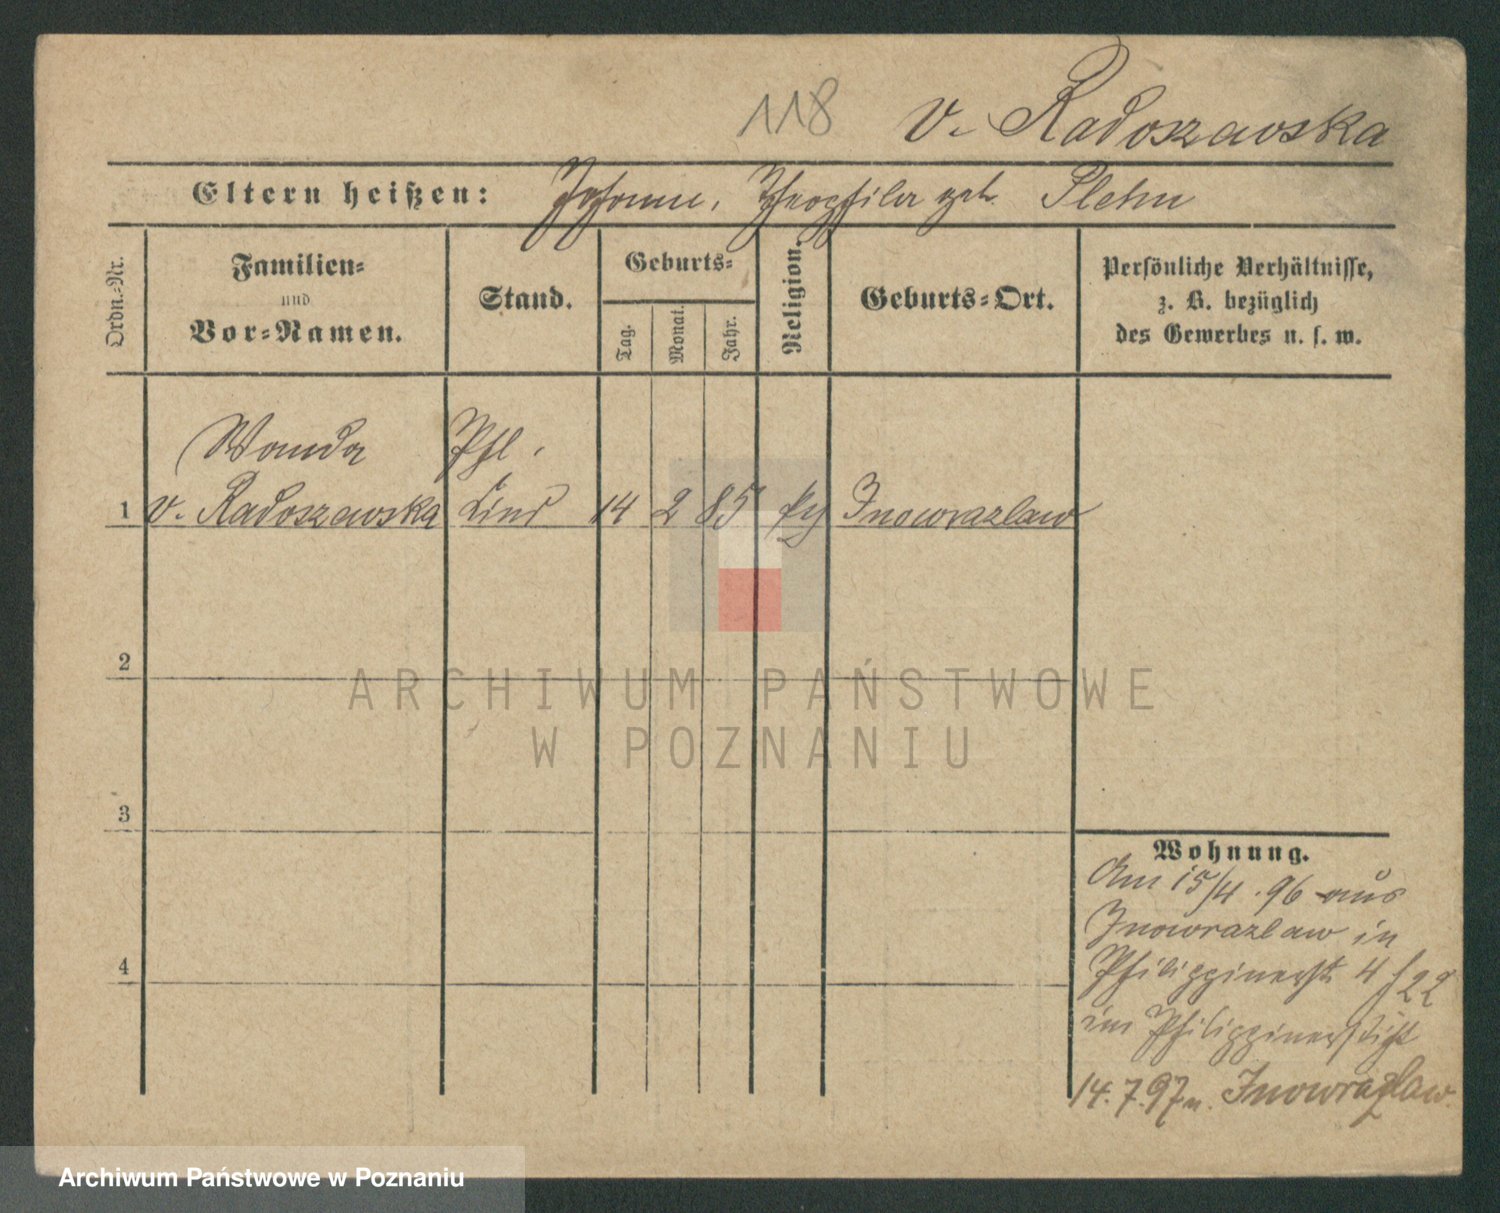 118 v. Radoszewska
Eltern heißen: Johann, Theophila geb. Plehn
Ordn.-Nr.
Familien-
und
Vor-Namen.
Stand.
Geburts-
Tag.
Monat.
Jahr.
Religion.
Geburts-Ort.
Persönliche Verhältnisse,
z. B. bezüglich
des Gewerbes u. s. w.
Wanda Pfl.
1 v. Radoszewska Kind 14 2 85 Inowrazlaw
2
3
4
Wohnung.
Am 15/4. 96 aus
Inowrazlaw in
Philippinerstr 4 f 22
im Philippinerstift
14.7.97 n. Inowrazlaw.
ARCHIWUM PAŃSTWOWE
W POZNANIU
Archiwum Państwowe w Poznaniu